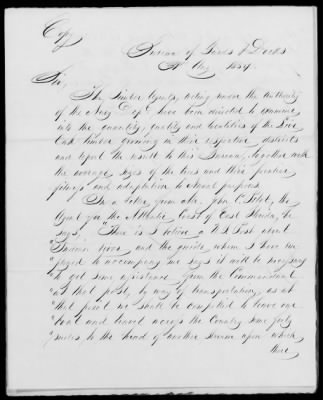 Copy
Bureau of Yards & Docks
Aug 1854.
Sir,
The Timber Agents, acting under the authority
of the Navy Dept. have been directed to examine
into the quantity, quality and localities of the Live
Oak Timber growing in their respective districts
and report the result to this Bureau, together with
the average sizes of the trees and their peculiar
fitness and adaptation to naval purposes.
In a letter from Mr. John C.
Agent for the Atlantic Coast of East Florida, he
says, "There is I believe a U.S. Post about
"Indian river and the guide whom I have en-
"gaged to accompany me says it will be necessary
"to get some assistance from the Commandant
"at that post, by way of transportation, as at
"that point we shall be compelled to leave our
"boat and travel across the Country some forty
"miles to the head of another stream upon which
there